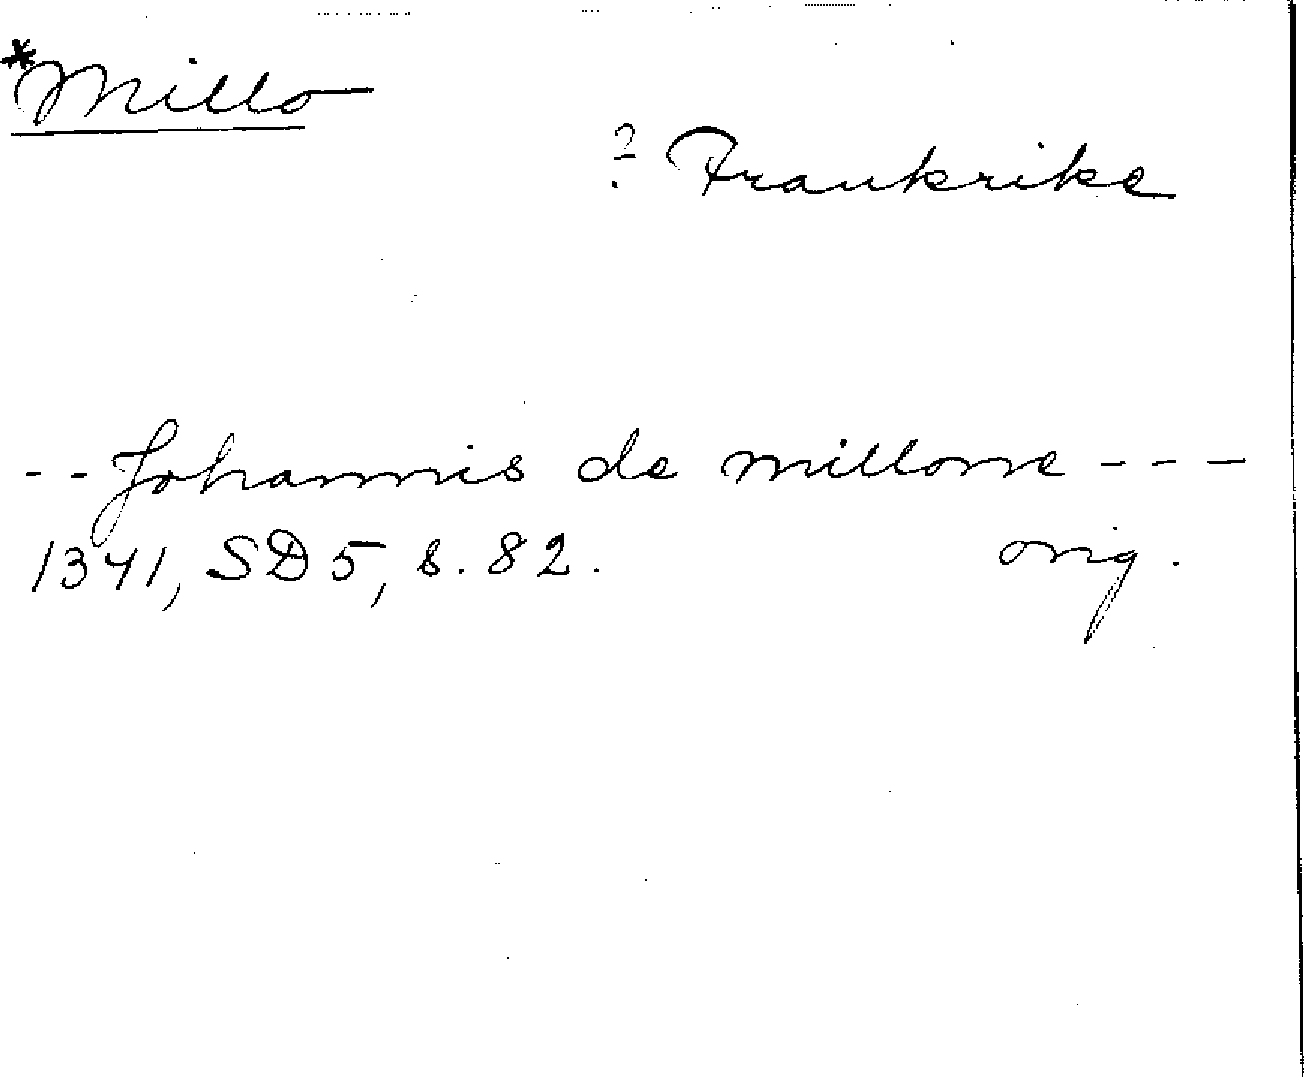 *Millo
? Frankrike
-- Johannis de millone ---
1341, SD 5, s. 82. orig.